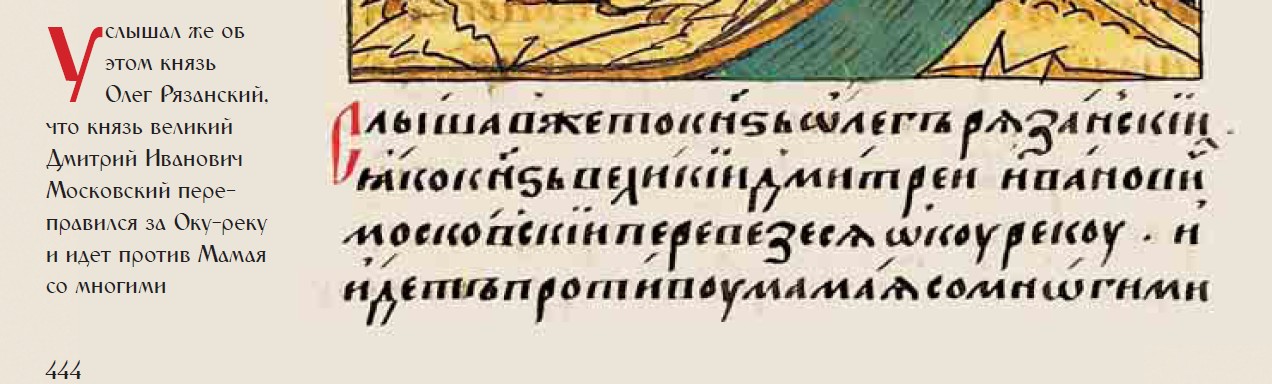 Услышал же об
этом князь
Олег Рязанский,
что князь великий
Дмитрий Иванович
Московский пере-
правился за Оку-реку
и идет против Мамая
со многими
Слышавжетокнѕьѡлегърѧзанскїи,
ꙗкокнѕьвеликїидмитреи иванови
московскїиперевезесѧ ѡкоурекоу · и
идетъпротивоумамаѧсомнѡгими
444